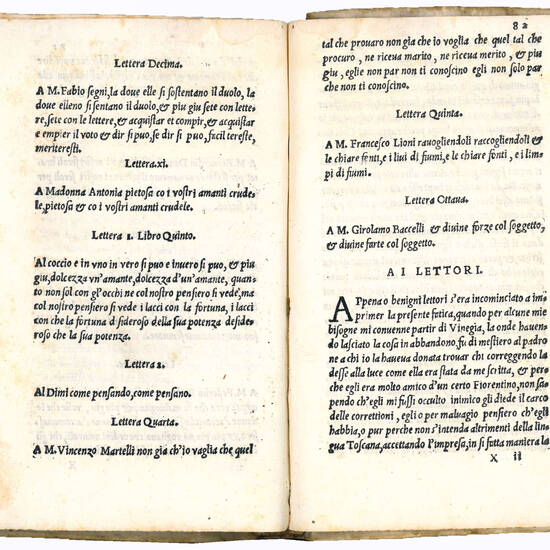 Lettera Decima.
A M. Fabio segni, la doue elle si sostentano il duolo, la
doue elleno si sentano il duolo, & piu giu sete con lette-
re, sete con le lettere, & acquistar et compir, & acquistar
e empier il voto & dir si puo, se dir si puo, facil tereste,
meriteresti.
Lettera.xi.
A Madonna Antonia pietosa co i vostri amanti crude-
le, pietosa & co i vostri amanti crudele.
Lettera 1. Libro Quinto.
Al coccio e in vno in vero si puo e inuero si puo, & piu
giu, dolcezza vn'amante, dolcezza d'un'amante, quan-
to non sol con gl'occhi ne col nostro pensiero si vede, ma
col nostro pensiero si vede i lacci con la fortuna, i lacci
con che la fortuna d sideroso della sua potenza deside-
roso che la sua potenza.
Lettera 2.
Al Dimi come pensando, come pensano.
Lettera Quarta.
A M. Vincenzo Martelli non già ch'io vaglia che quel
82
tal che prouaro non gia che io voglia che quel tal che
procuro, ne riceua marito, ne riceua merito, & piu
giu, eglie non par non ti conoscino egli non solo par
che non ti conoscino.
Lettera Quinta.
A M. Francesco Lioni rauogliendoli raccogliendoli &
le chiare fonti, e i liui di fiumi, e le chiare fonti, e i lim-
pi di fiumi.
Lettera Ottaua.
A M. Girolamo Baccelli & diuine forze col soggetto,
& diuine farte col soggetto.
AI LETTORI.
APpena o benigni lettori s'era incominciato a im-
primer la presente fatica, quando per alcune mie
bisogne mi conuenne partir di Vinegia, la onde hauen-
do lasciato la cosa in abbandono, fu di mestiero al padro
ne a chi io la haueua donata trouar chi correggendo la
desse alla luce come ella era stata da me scritta, & perche
egli era molto amico d'un certo Fiorentino, non sa-
pendo ch'egli mi fussi occulto inimico gli diede il carco
delle correttioni, egli o per maluagio pensiero ch'egli
habbia, o pur perche non s'intenda altrimenti della lin
gua Toscana, accettando l'impresa, in si fatta maniera la
X ii